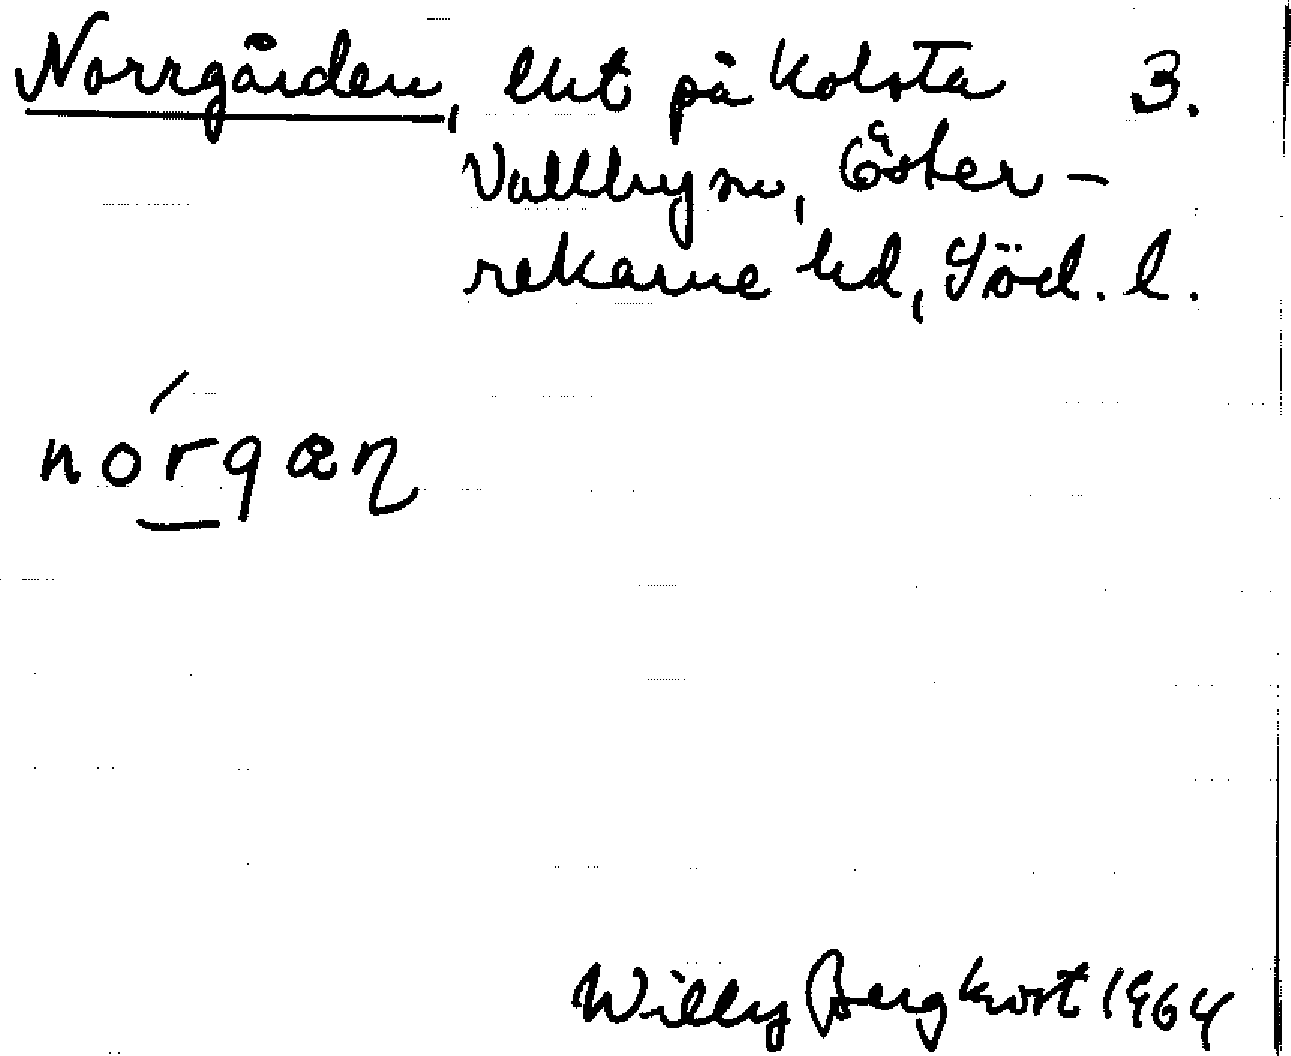 Norrgården, lht på Kolsta 3.
Vallby sn, Öster-
rekarne hd, Söd. l.
nórgæn
Willy Bergkvist 1964